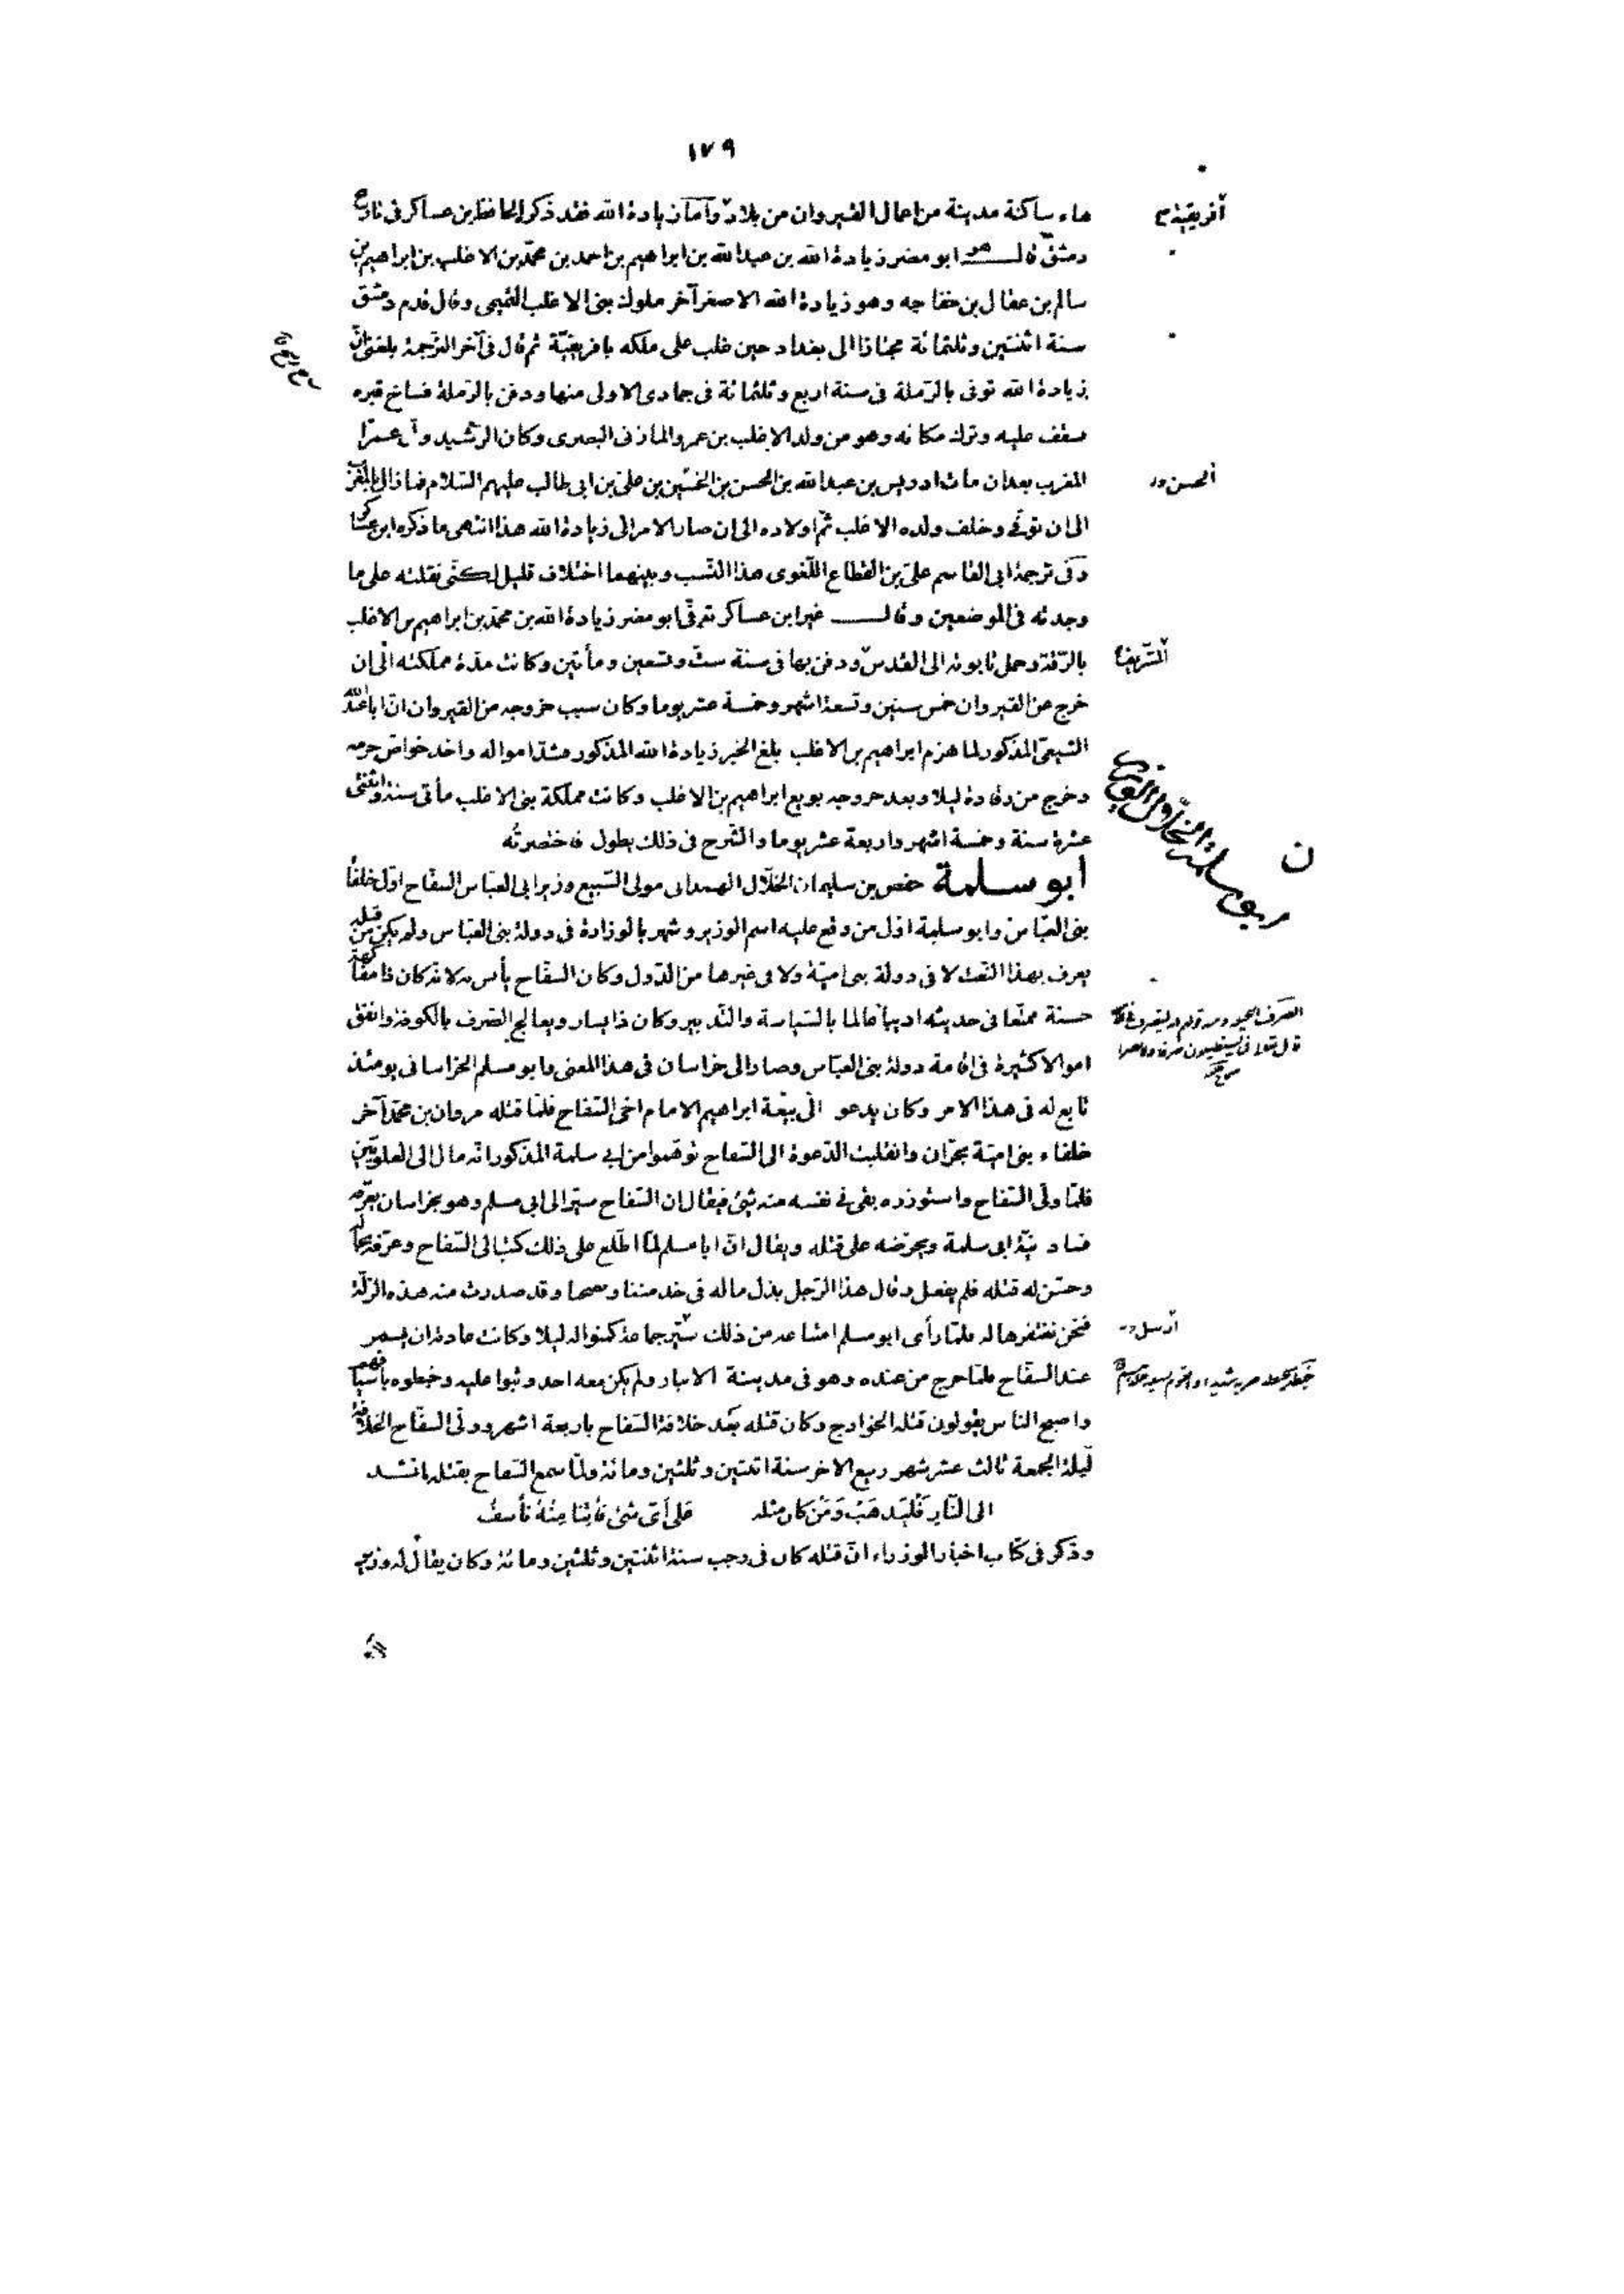 ١٧٩
هاء ساكنة مدينة من اعمال القيروان من بلاد وأما زيادة الله فقد ذكر الحافظ ابن عساكر فى تاريخ
أفريقية
دمشق قال هو ابو مضر زيادة الله بن عبد الله بن ابراهيم بن احمد بن محمد بن الاغلب بن ابراهيم بن
سالم بن عقال بن خفاجه وهو زيادة الله الاصغر آخر ملوك بنى الاغلب التميمى وقال قدم دمشق
سنة اثنتين وثلثمائة مجتازا الى بغداد حين غلب على ملكه بافريقيّة ثم قال فى آخر الترجمة بلغنى ان
زيادة الله توفى بالرّملة فى سنة اربع وثلثمائة فى جمادى الاولى منها ودفن بالرّملة فساخ قبره
فسقف عليه وترك مكانه وهو من ولد الاغلب بن عمرو المازنى البصرى وكان الرّشيد
المغرب بعد ان مات ادريس بن عبد الله بن الحسن بن الحسين بن على بن ابى طالب عليهم السّلام فما زال بالمغرب
الحسن
الى ان توفى وخلف ولده الاغلب ثمّ اولاده الى ان صار الامر الى زيادة الله هذا انتهى ما ذكره ابن عساكر
وفى ترجمة ابى القاسم علىّ بن القطاع اللّغوى هذا النّسب وبينهما اختلاف قليل لكنّى نقلته على ما
وجدته فى الموضعين وقال غير ابن عساكر توفّى ابو مضر زيادة الله بن محمّد بن ابراهيم بن الاغلب
بالرّقة وحمل تابوته الى القدس ودفن بها فى سنة ستّ وتسعين ومأتين وكانت مدّة مملكته الى ان
الشّريف
خرج عن القيروان خمس سنين وتسعة اشهر وخمسة عشر يوما وكان سبب خروجه من القيروان انّ ابا عبد الله
الشيعىّ المذكور لما هزم ابراهيم بن الاغلب بلغ الخبر زيادة الله المذكور فشدّ امواله واخذ خواصّ حرمه
وخرج من رقادة ليلا وبعد خروجه بويع ابراهيم بن الاغلب وكانت مملكة بنى الاغلب مأتى سنة واثنتى
عشرة سنة وخمسة اشهر واربعة عشر يوما والشّرح فى ذلك يطول فاختصرتُه
ن
ابو سلمة حفص بن سليمان الخلّال الهمدانى مولى السّبيع وزير ابى العبّاس السفّاح اوّل خلفاء
بنى العبّاس وابو سلمة اوّل من وقع عليه اسم الوزير وشهر بالوزارة فى دولة بنى العبّاس ولم يكن من قبله
يعرف بهذا النّعت لا فى دولة بنى اميّة ولا فى غيرها من الدّول وكان السفّاح يأنس به لانّه كان ذا مفاكهة
حسنة ممتّعا فى حديثه اديبا عالما بالسّياسة والتّدبير وكان ذا يسار ويعالج الصّرف بالكوفة وانفق
اموالا كثيرة فى اقامة دولة بنى العبّاس وصار الى خراسان فى هذا المعنى وابو مسلم الخراسانى يومئذ
تابع له فى هذا الامر وكان يدعو الى بيعة ابراهيم الامام اخى السّفاح فلمّا قتله مروان بن محمّد آخر
خلفاء بنى اميّة بحرّان وانقلبت الدّعوة الى السّفاح توهّموا من ابى سلمة المذكور انّه مال الى العلويّين
فلمّا ولّى السّفاح واستوزره بقى فى نفسه منه شئ فيقال ان السّفاح سيّر الى ابى مسلم وهو بخراسان يعرّفه
فساد نيّة ابى سلمة ويحرّضه على قتله ويقال انّ ابا مسلم لمّا اطّلع على ذلك كتب الى السّفاح وعرّفه بحاله
وحسّن له قتله فلم يفعل وقال هذا الرّجل بذل ماله فى خدمتنا ونصحنا وقد صدرت منه هذه الزّلّة
فنحن نغتفرها له فلمّا رأى ابو مسلم امتناعه من ذلك سيّر جماعة كمنوا له ليلا وكانت عادته ان يسمر
أرسل
عند السفّاح فلمّا خرج من عنده وهو فى مدينة الانبار ولم يكن معه احد وثبوا عليه وخبطوه باسيافهم
واصبح الناس يقولون قتله الخوارج وكان قتله بعد خلافة السّفاح باربعة اشهر وولّى السفّاح الخلافة
ليلة الجمعة ثالث عشر شهر ربيع الاخر سنة اثنتين وثلثين ومائة ولمّا سمع السّفاح بقتله انشد
الى النّار فَلْيَذهَبْ وَمَنْ كان مثله عَلى أىّ شئ فاتنا مِنْهُ نأسفُ
وذكر فى كتاب اخبار الوزراء انّ قتله كان فى رجب سنة اثنتين وثلثين ومائة وكان يقال له وزير